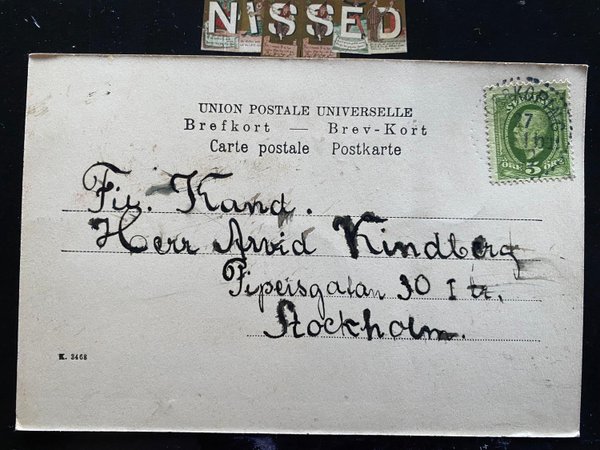 NISSED
UNION POSTALE UNIVERSELLE
Brefkort — Brev-Kort
Carte postale Postkarte
Fil. Kand.
Herr Arvid Kindberg
Pipersgatan 30 I tr.
Stockholm.
K. 3468
5